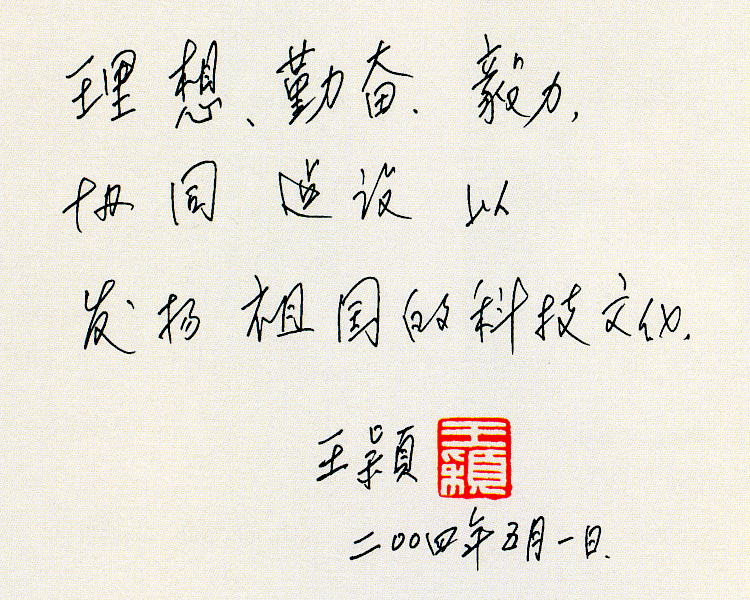 理想、勤奋、毅力,
协同 建设 以
发扬祖国的科技文化.
王穎
王穎
二〇〇四年五月一日.